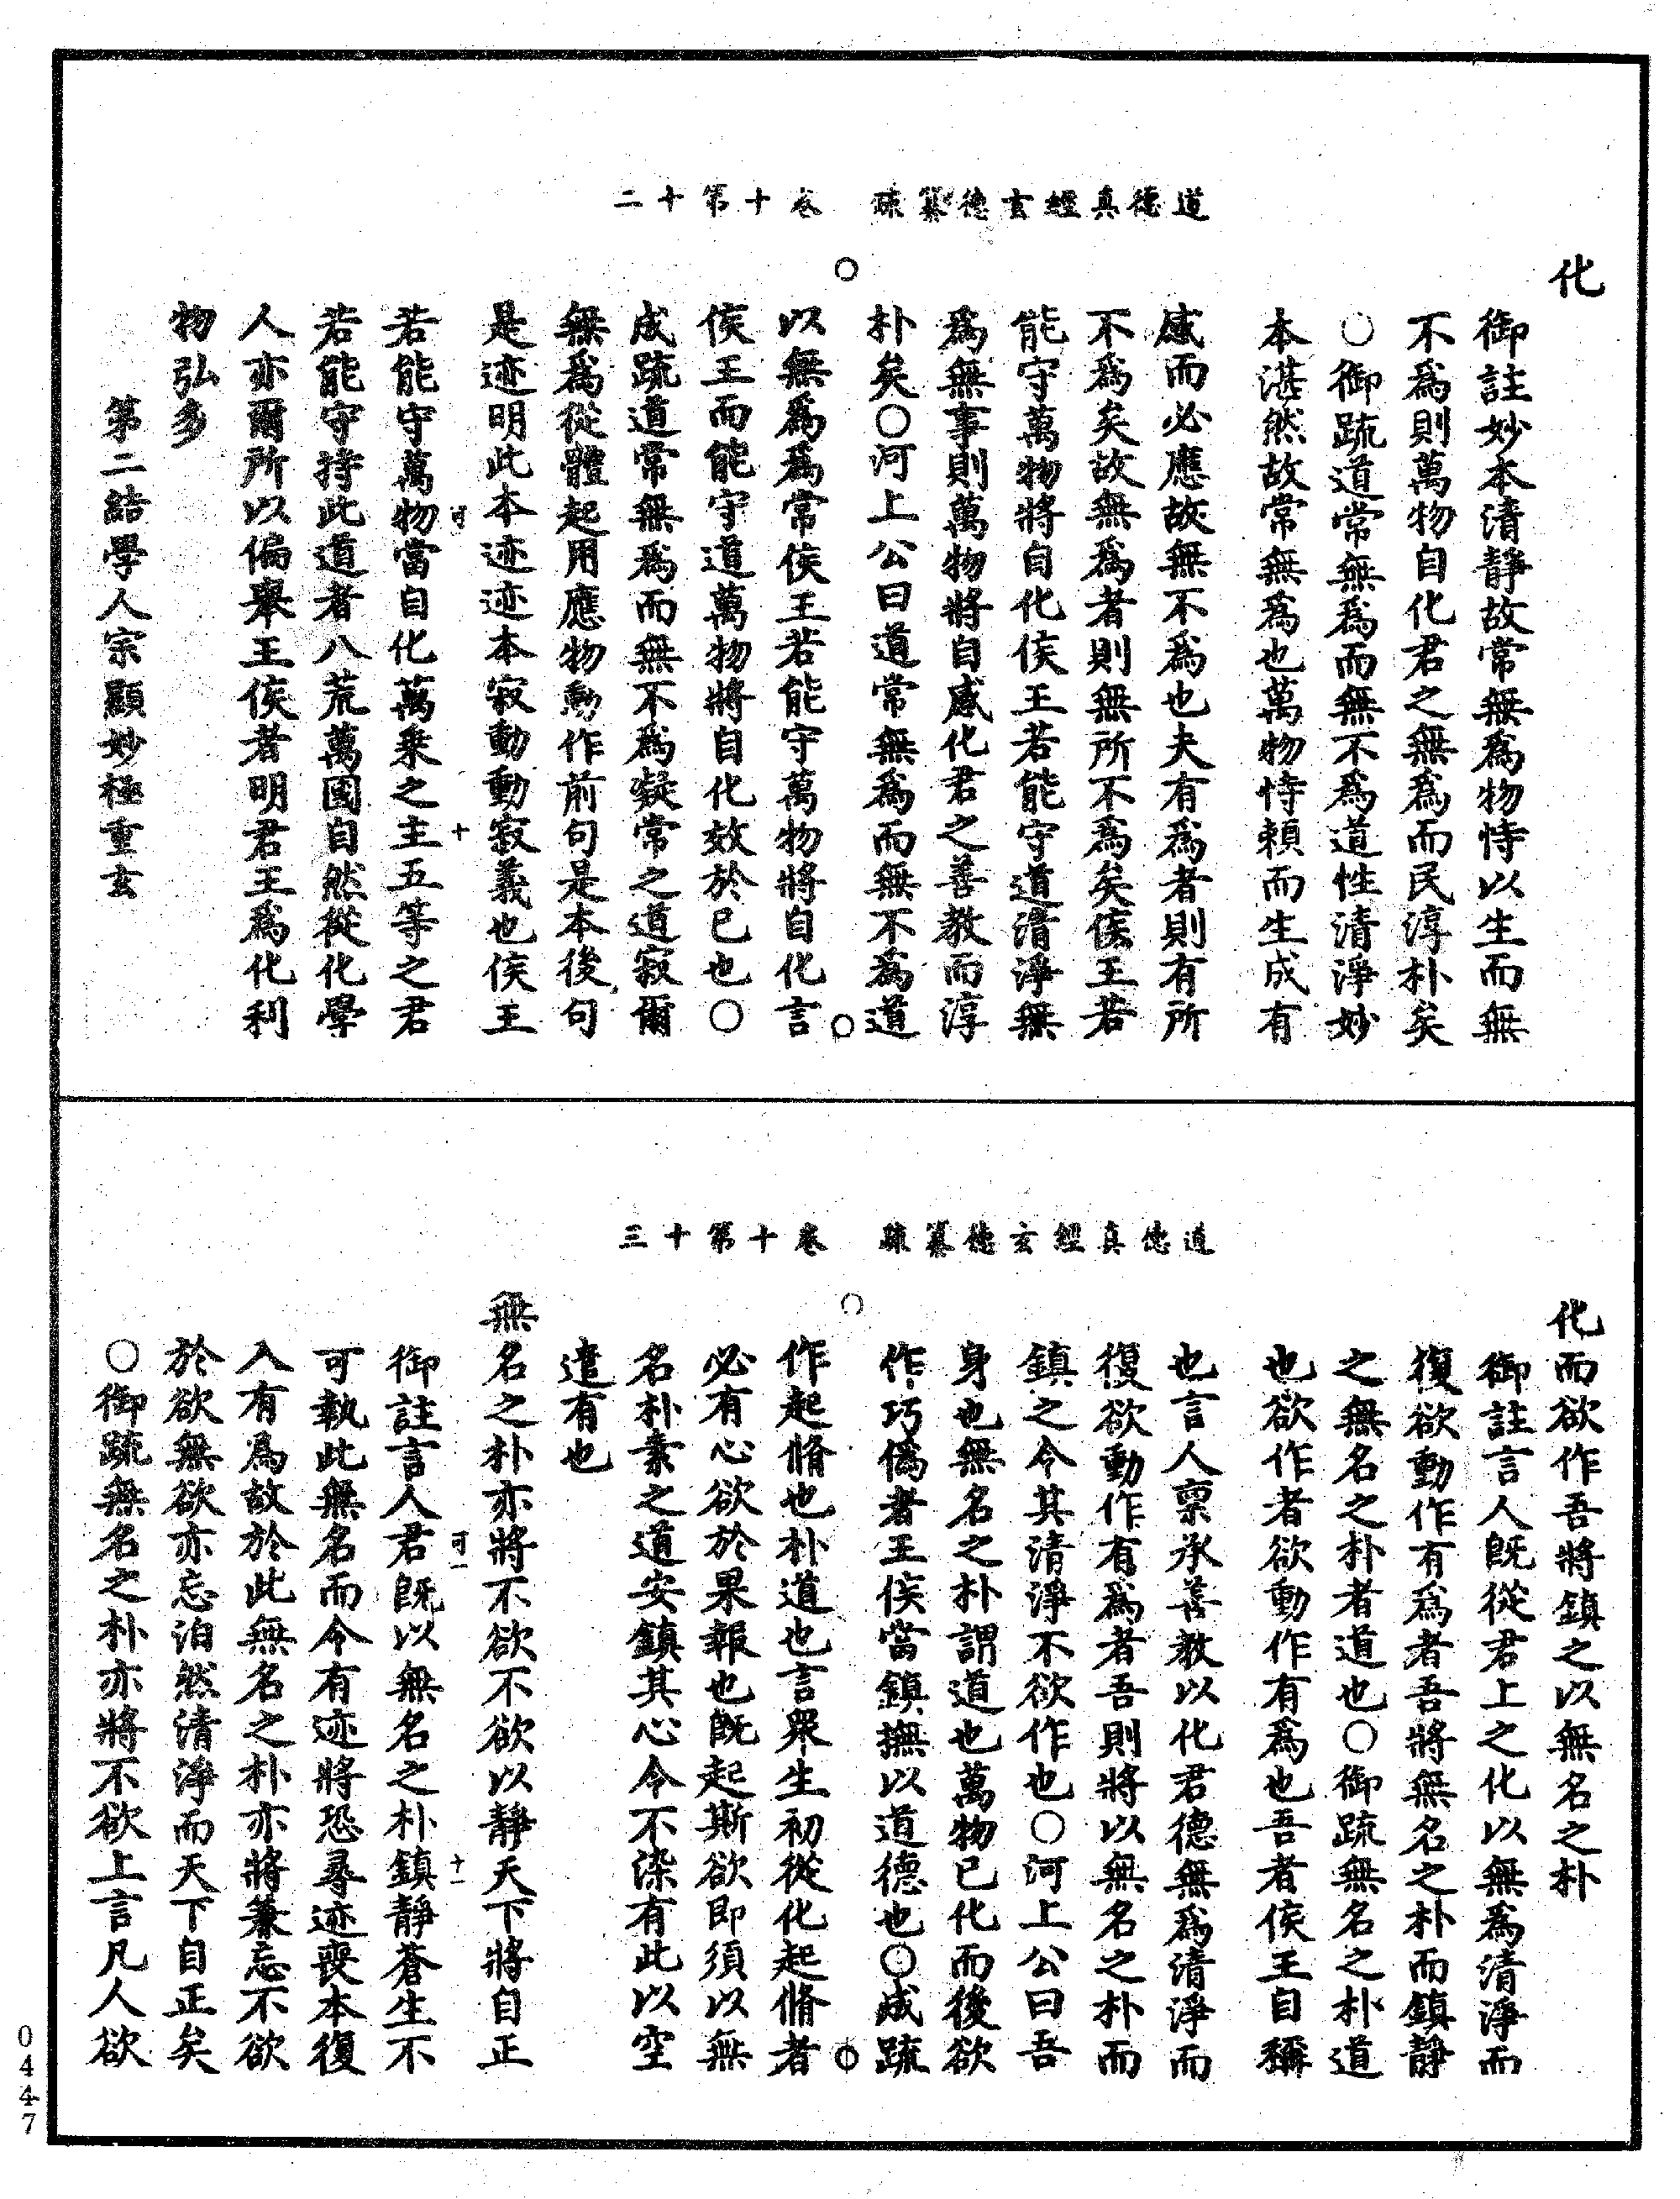 道德真經玄德纂疏　卷十第十二
化
御註妙本清靜故常無爲物恃以生而無
不爲則萬物自化君之無爲而民淳朴矣
○御疏道常無爲而無不爲道性清淨妙
本湛然故常無爲也萬物恃賴而生成有
感而必應故無不爲也夫有爲者則有所
不爲矣故無爲者則無所不爲矣侯王若
能守萬物將自化侯王若能守道清淨無
爲無事則萬物將自感化君之善教而淳
朴矣○河上公曰道常無爲而無不爲道
以無爲爲常侯王若能守萬物將自化言
侯王而能守道萬物將自化效於已也○
成疏道常無爲而無不爲凝常之道寂爾
無爲從體起用應物動作前句是本後句
是迹明此本迹迹本寂動動寂義也侯王
可　十
若能守萬物當自化萬乘之主五等之君
若能守持此道者八荒萬國自然從化學
人亦爾所以偏舉王侯者明君王爲化利
物弘多
第二結學人宗顯妙極重玄
道德真經玄德纂疏　卷十第十三
化而欲作吾將鎮之以無名之朴
御註言人既從君上之化以無爲清淨而
復欲動作有爲者吾將無名之朴而鎮靜
之無名之朴者道也○御疏無名之朴道
也欲作者欲動作有爲也吾者侯王自稱
也言人稟承善教以化君德無爲清淨而
復欲動作有爲者吾則將以無名之朴而
鎮之令其清淨不欲作也○河上公曰吾
身也無名之朴謂道也萬物已化而後欲
作巧僞者王侯當鎮撫以道德也○成疏
作起脩也朴道也言衆生初從化起脩者
必有心欲於果報也既起斯欲即須以無
名朴素之道安鎮其心令不染有此以空
遣有也
無名之朴亦將不欲不欲以靜天下將自正
可一　十一
御註言人君既以無名之朴鎮靜蒼生不
可執此無名而令有迹將恐尋迹喪本復
入有爲故於此無名之朴亦將兼忘不欲
於欲無欲亦忘泊然清淨而天下自正矣
○御疏無名之朴亦將不欲上言凡人欲
0447